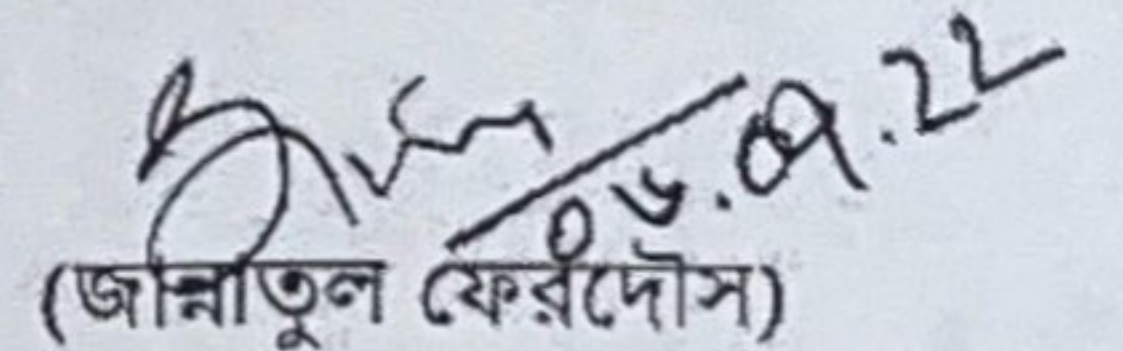 ০৬.০৭.২২
(জান্নাতুল ফেরদৌস)